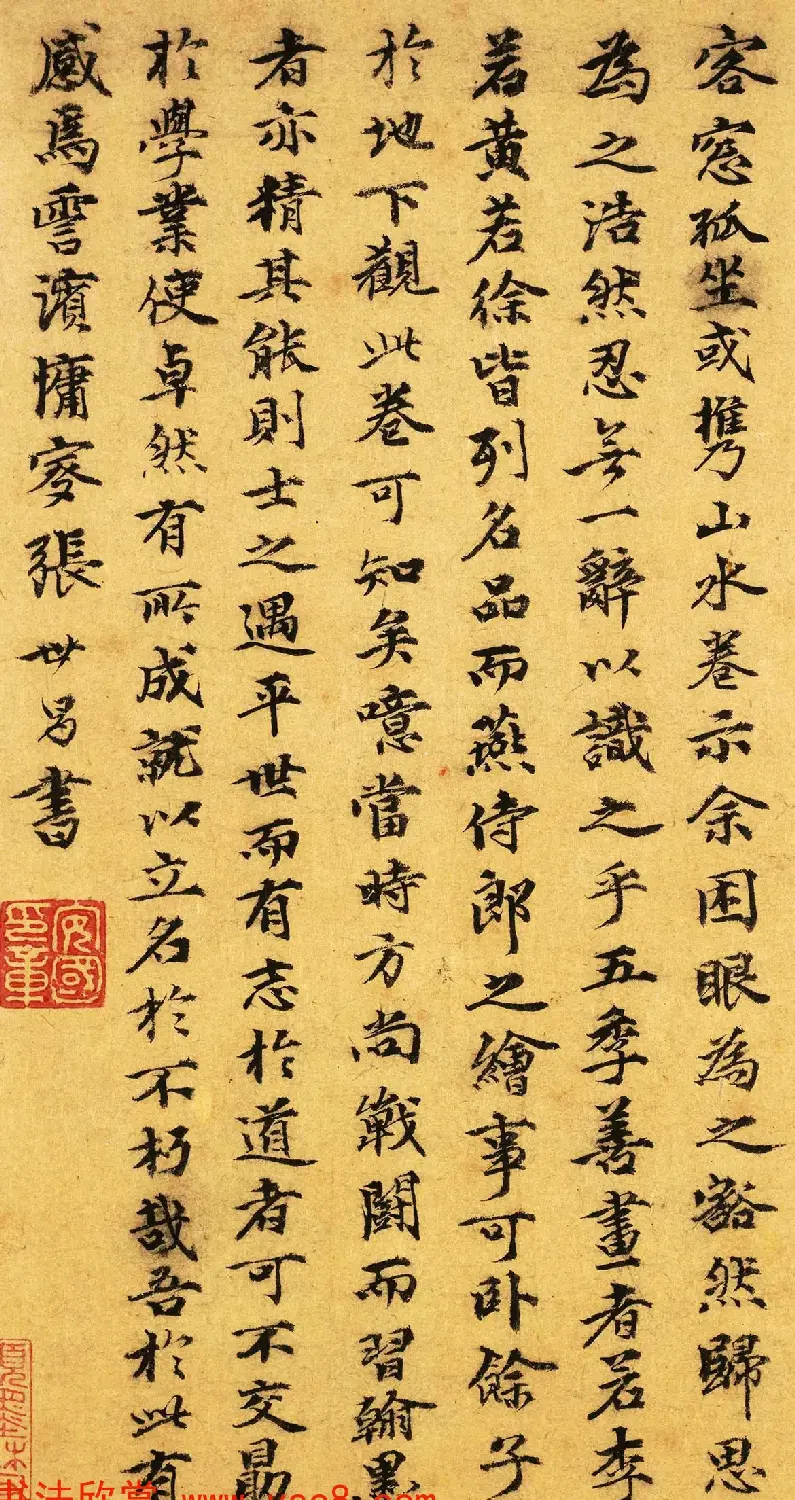 客窓孤坐或攜山水卷示余困眼為之豁然歸思
為之浩然忍無一辭以識之乎五季善畫者若李
若黃若徐皆列名品而燕侍郎之繪事可卧餘子
於地下觀此卷可知矣噫當時方尚戰鬪而習翰墨
者亦精其能則士之遇平世而有志於道者可不交勗
於學業使卓然有所成就以立名於不朽哉吾於此有
感焉霅濱慵叟張世昌書
安國印章
书法欣赏 www.yac8.com